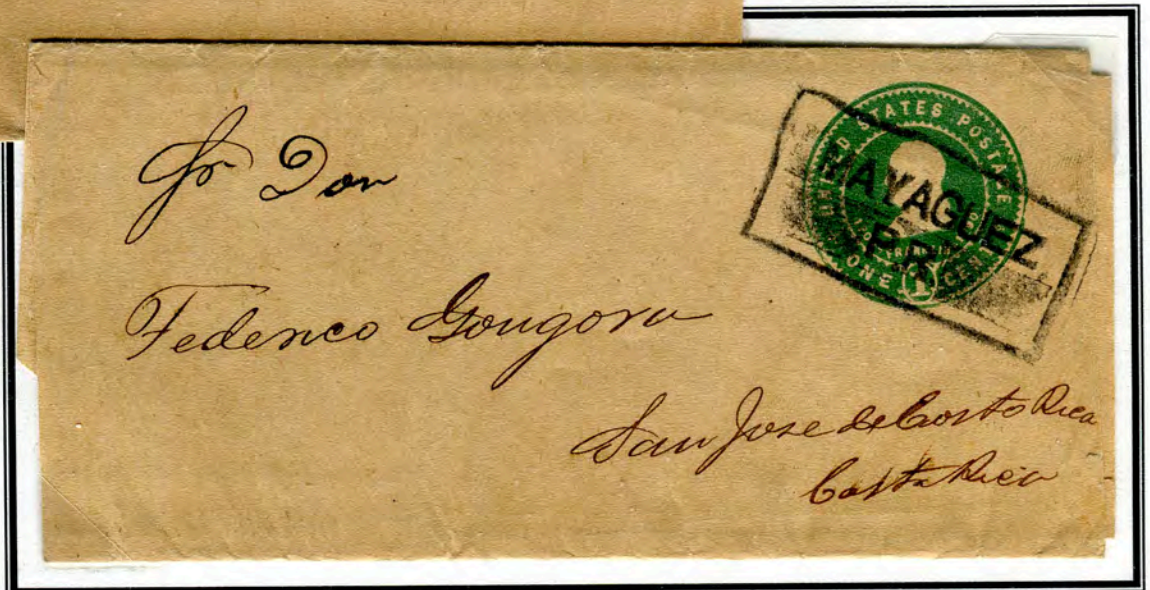 Sr Don
Federico Gongora
San Jose de Costa Rica
Costa Rica
UNITED STATES POSTAGE
ONE 1 CENT
MAYAGUEZ,
P.R.